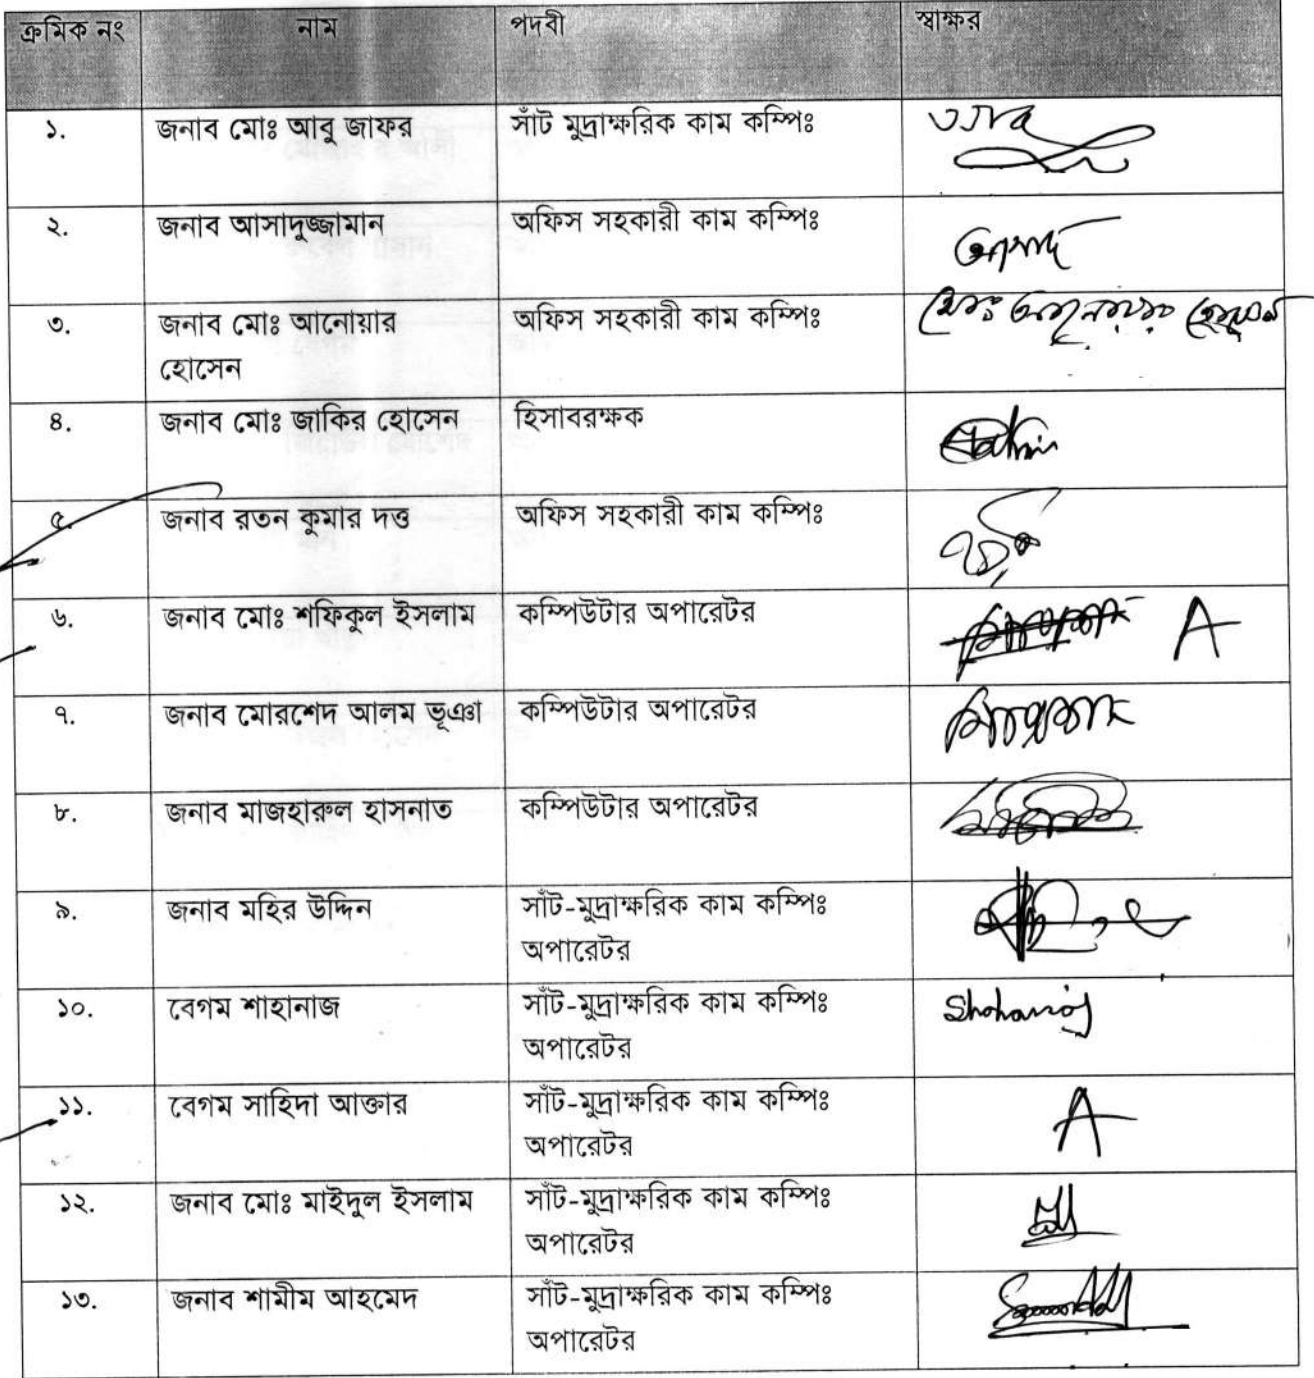 ক্রমিক নং নাম পদবী স্বাক্ষর
১. জনাব মোঃ আবু জাফর সাঁট মুদ্রাক্ষরিক কাম কম্পিঃ
২. জনাব আসাদুজ্জামান অফিস সহকারী কাম কম্পিঃ আসাদ
৩. জনাব মোঃ আনোয়ার অফিস সহকারী কাম কম্পিঃ মোঃ আনোয়ার হোসেন
হোসেন
৪. জনাব মোঃ জাকির হোসেন হিসাবরক্ষক
৫. জনাব রতন কুমার দত্ত অফিস সহকারী কাম কম্পিঃ
৬. জনাব মোঃ শফিকুল ইসলাম কম্পিউটার অপারেটর A
৭. জনাব মোরশেদ আলম ভূঞা কম্পিউটার অপারেটর
৮. জনাব মাজহারুল হাসনাত কম্পিউটার অপারেটর
৯. জনাব মহির উদ্দিন সাঁট-মুদ্রাক্ষরিক কাম কম্পিঃ
অপারেটর
১০. বেগম শাহানাজ সাঁট-মুদ্রাক্ষরিক কাম কম্পিঃ Shohanaj
অপারেটর
১১. বেগম সাহিদা আক্তার সাঁট-মুদ্রাক্ষরিক কাম কম্পিঃ A
অপারেটর
১২. জনাব মোঃ মাইদুল ইসলাম সাঁট-মুদ্রাক্ষরিক কাম কম্পিঃ
অপারেটর
১৩. জনাব শামীম আহমেদ সাঁট-মুদ্রাক্ষরিক কাম কম্পিঃ
অপারেটর